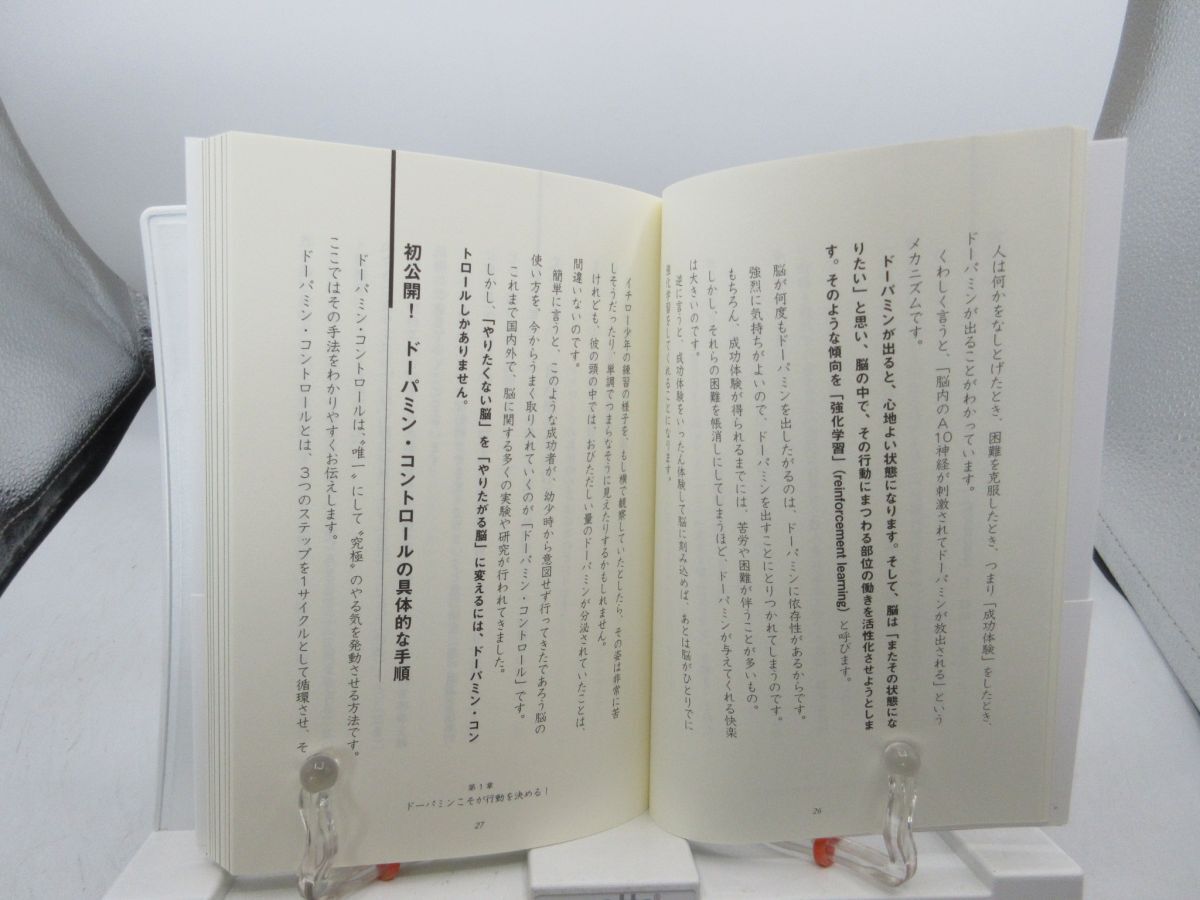 人は何かをなしとげたとき、困難を克服したとき、つまり「成功体験」をしたとき、
ドーパミンが出ることがわかっています。
くわしく言うと、「脳内のA10神経が刺激されてドーパミンが放出される」という
メカニズムです。
ドーパミンが出ると、心地よい状態になります。そして、脳は「またその状態にな
りたい」と思い、脳の中で、その行動にまつわる部位の働きを活性化させようとしま
す。そのような傾向を「強化学習」（reinforcement learning）と呼びます。
脳が何度もドーパミンを出したがるのは、ドーパミンに依存性があるからです。
強烈に気持ちがよいので、ドーパミンを出すことにとりつかれてしまうのです。
もちろん、成功体験が得られるまでには、苦労や困難が伴うことが多いもの。
しかし、それらの困難を帳消しにしてしまうほど、ドーパミンが与えてくれる快楽
は大きいのです。
逆に言うと、成功体験をいったん体験して脳に刻み込めば、あとは脳がひとりでに
強化学習をしてくれることになります。
26
イチロー少年の練習の様子を、もし横で観察していたとしたら、その姿は非常に苦
しそうだったり、単調でつまらなそうに見えたりするかもしれません。
けれども、彼の頭の中では、おびただしい量のドーパミンが分泌されていたことは、
間違いないのです。
簡単に言うと、このような成功者が、幼少時から意図せず行ってきたであろう脳の
使い方を、今からうまく取り入れていくのが「ドーパミン・コントロール」です。
これまで国内外で、脳に関する多くの実験や研究が行われてきました。
しかし、「やりたくない脳」を「やりたがる脳」に変えるには、ドーパミン・コン
トロールしかありません。
初公開！ ドーパミン・コントロールの具体的な手順
ドーパミン・コントロールは〝唯一〟にして〝究極〟のやる気を発動させる方法です。
ここではその手法をわかりやすくお伝えします。
ドーパミン・コントロールとは、3つのステップを1サイクルとして循環させ、そ
第1章
ドーパミンこそが行動を決める！
27